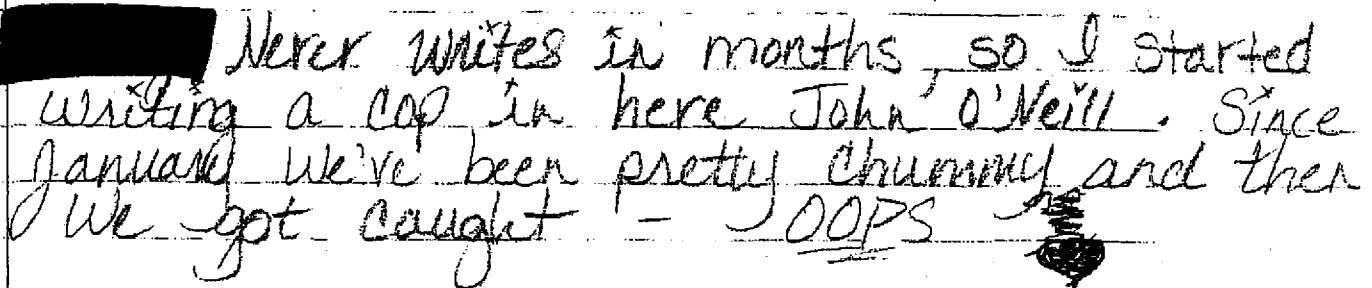 Never writes in months, so I started
writing a cop in here John O'Neill. Since
January we've been pretty chummy and then
we got caught - OOPS